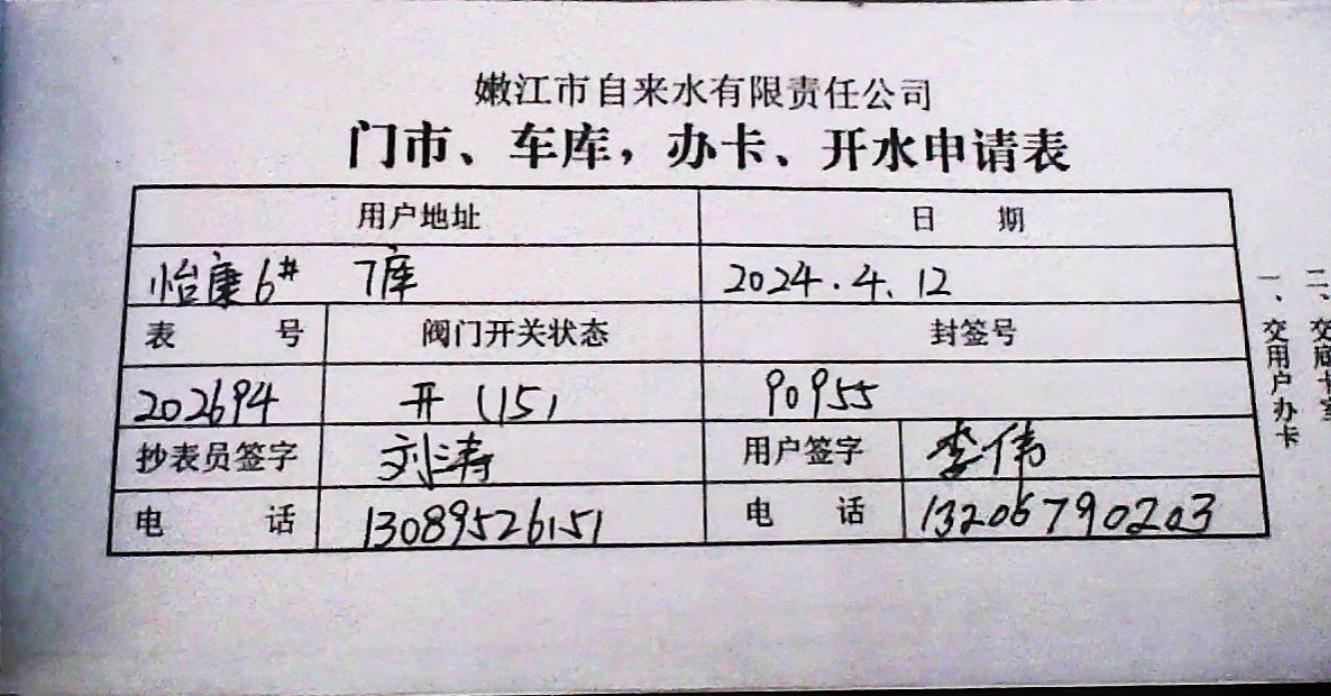 嫩江市自来水有限责任公司
门市、车库，办卡、开水申请表
用户地址 日 期
怡康6# 7库 2024.4.12
表 号 阀门开关状态 封签号
202694 开（15） 90955
抄表员签字 刘涛 用户签字 李伟
电 话 13089526151 电 话 13206790203
一、交用户办卡
二、交